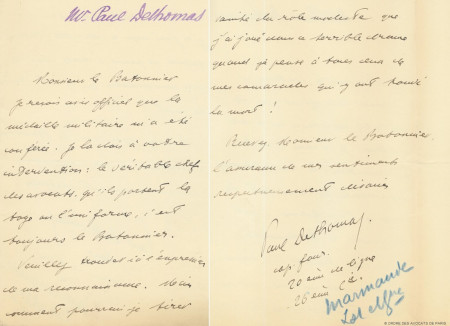 Mr. Paul Dethomas
Monsieur le Batonnier
je reçois avis officiel que la
médaille militaire m'a été
conférée. Je la dois à votre
intervention : le véritable chef
des avocats, qu'ils portent la
toge ou l'uniforme, c'est
toujours le Batonnier.
Veuillez trouver ici l'expression
de ma reconnaissance. Mais
comment pourrais-je tirer
vanité du rôle modeste que
j'ai joué dans ce terrible drame
quand je pense à tous ceux de
mes camarades qui y ont trouvé
la mort !
Monsieur le Batonnier,
l'assurance de mes sentiments
respectueusement dévoués
Paul Dethomas
cap. four.
20 ème de ligne
26 ème Cie
Marmande
Lot et Gne
© ORDRE DES AVOCATS DE PARIS